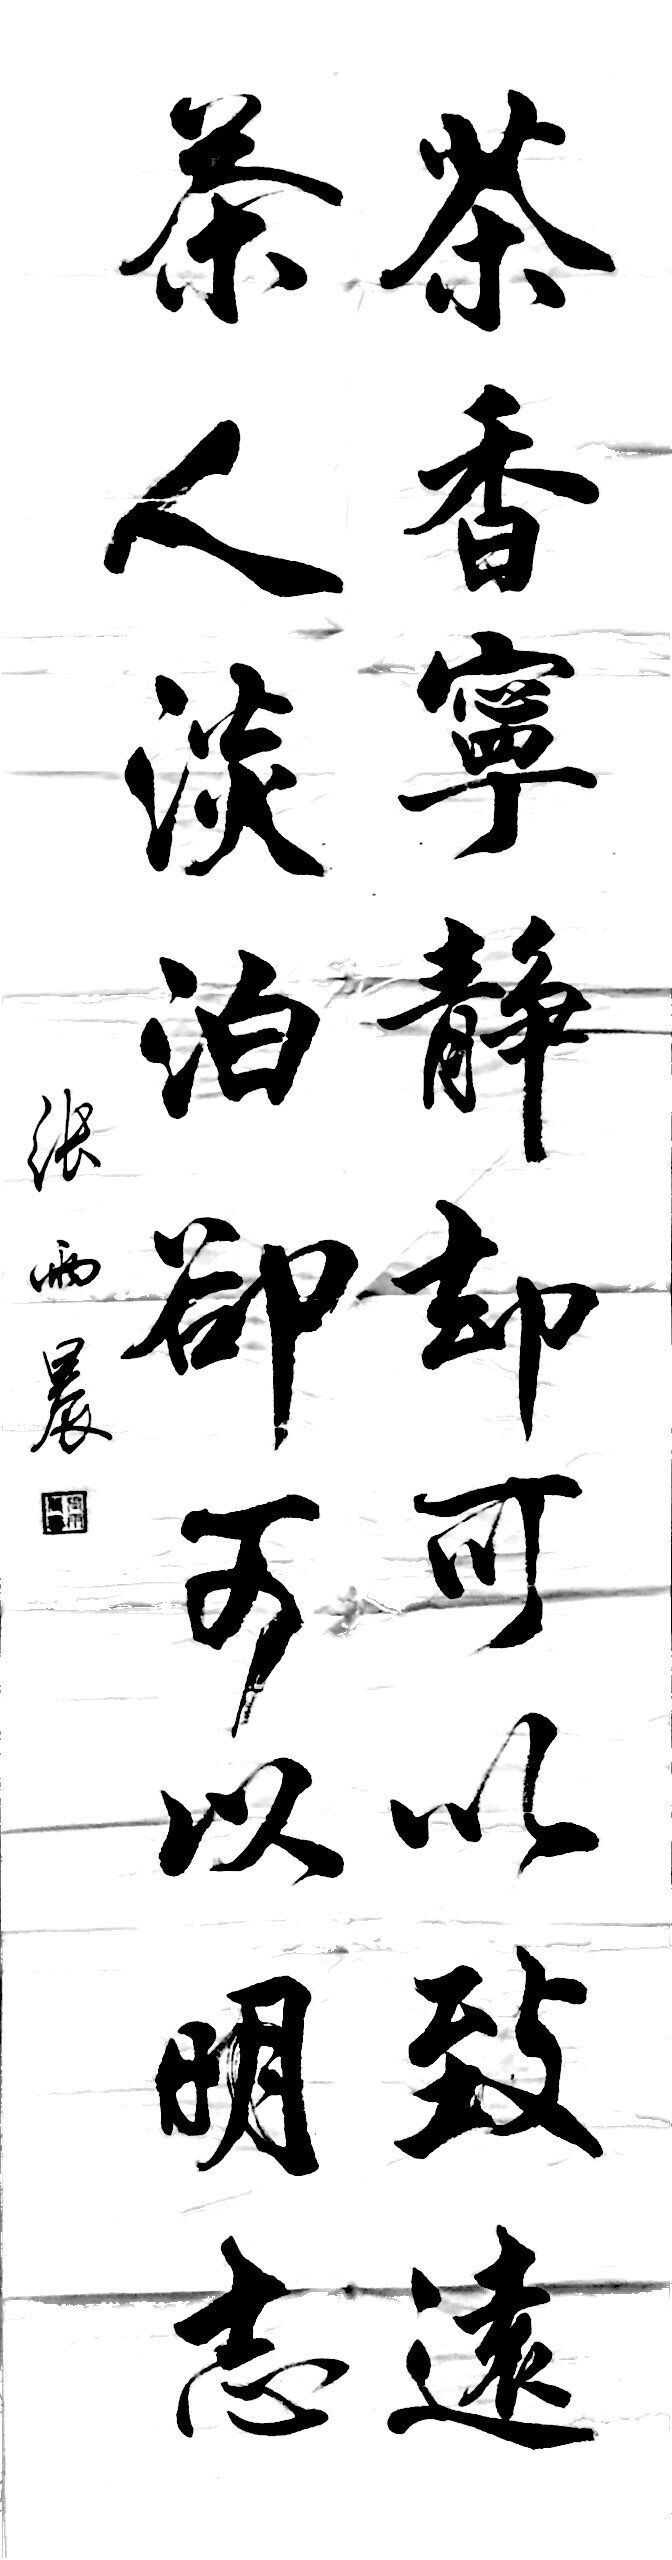 茶香寧静却可以致遠
茶人淡泊卻可以明志
张雨晨